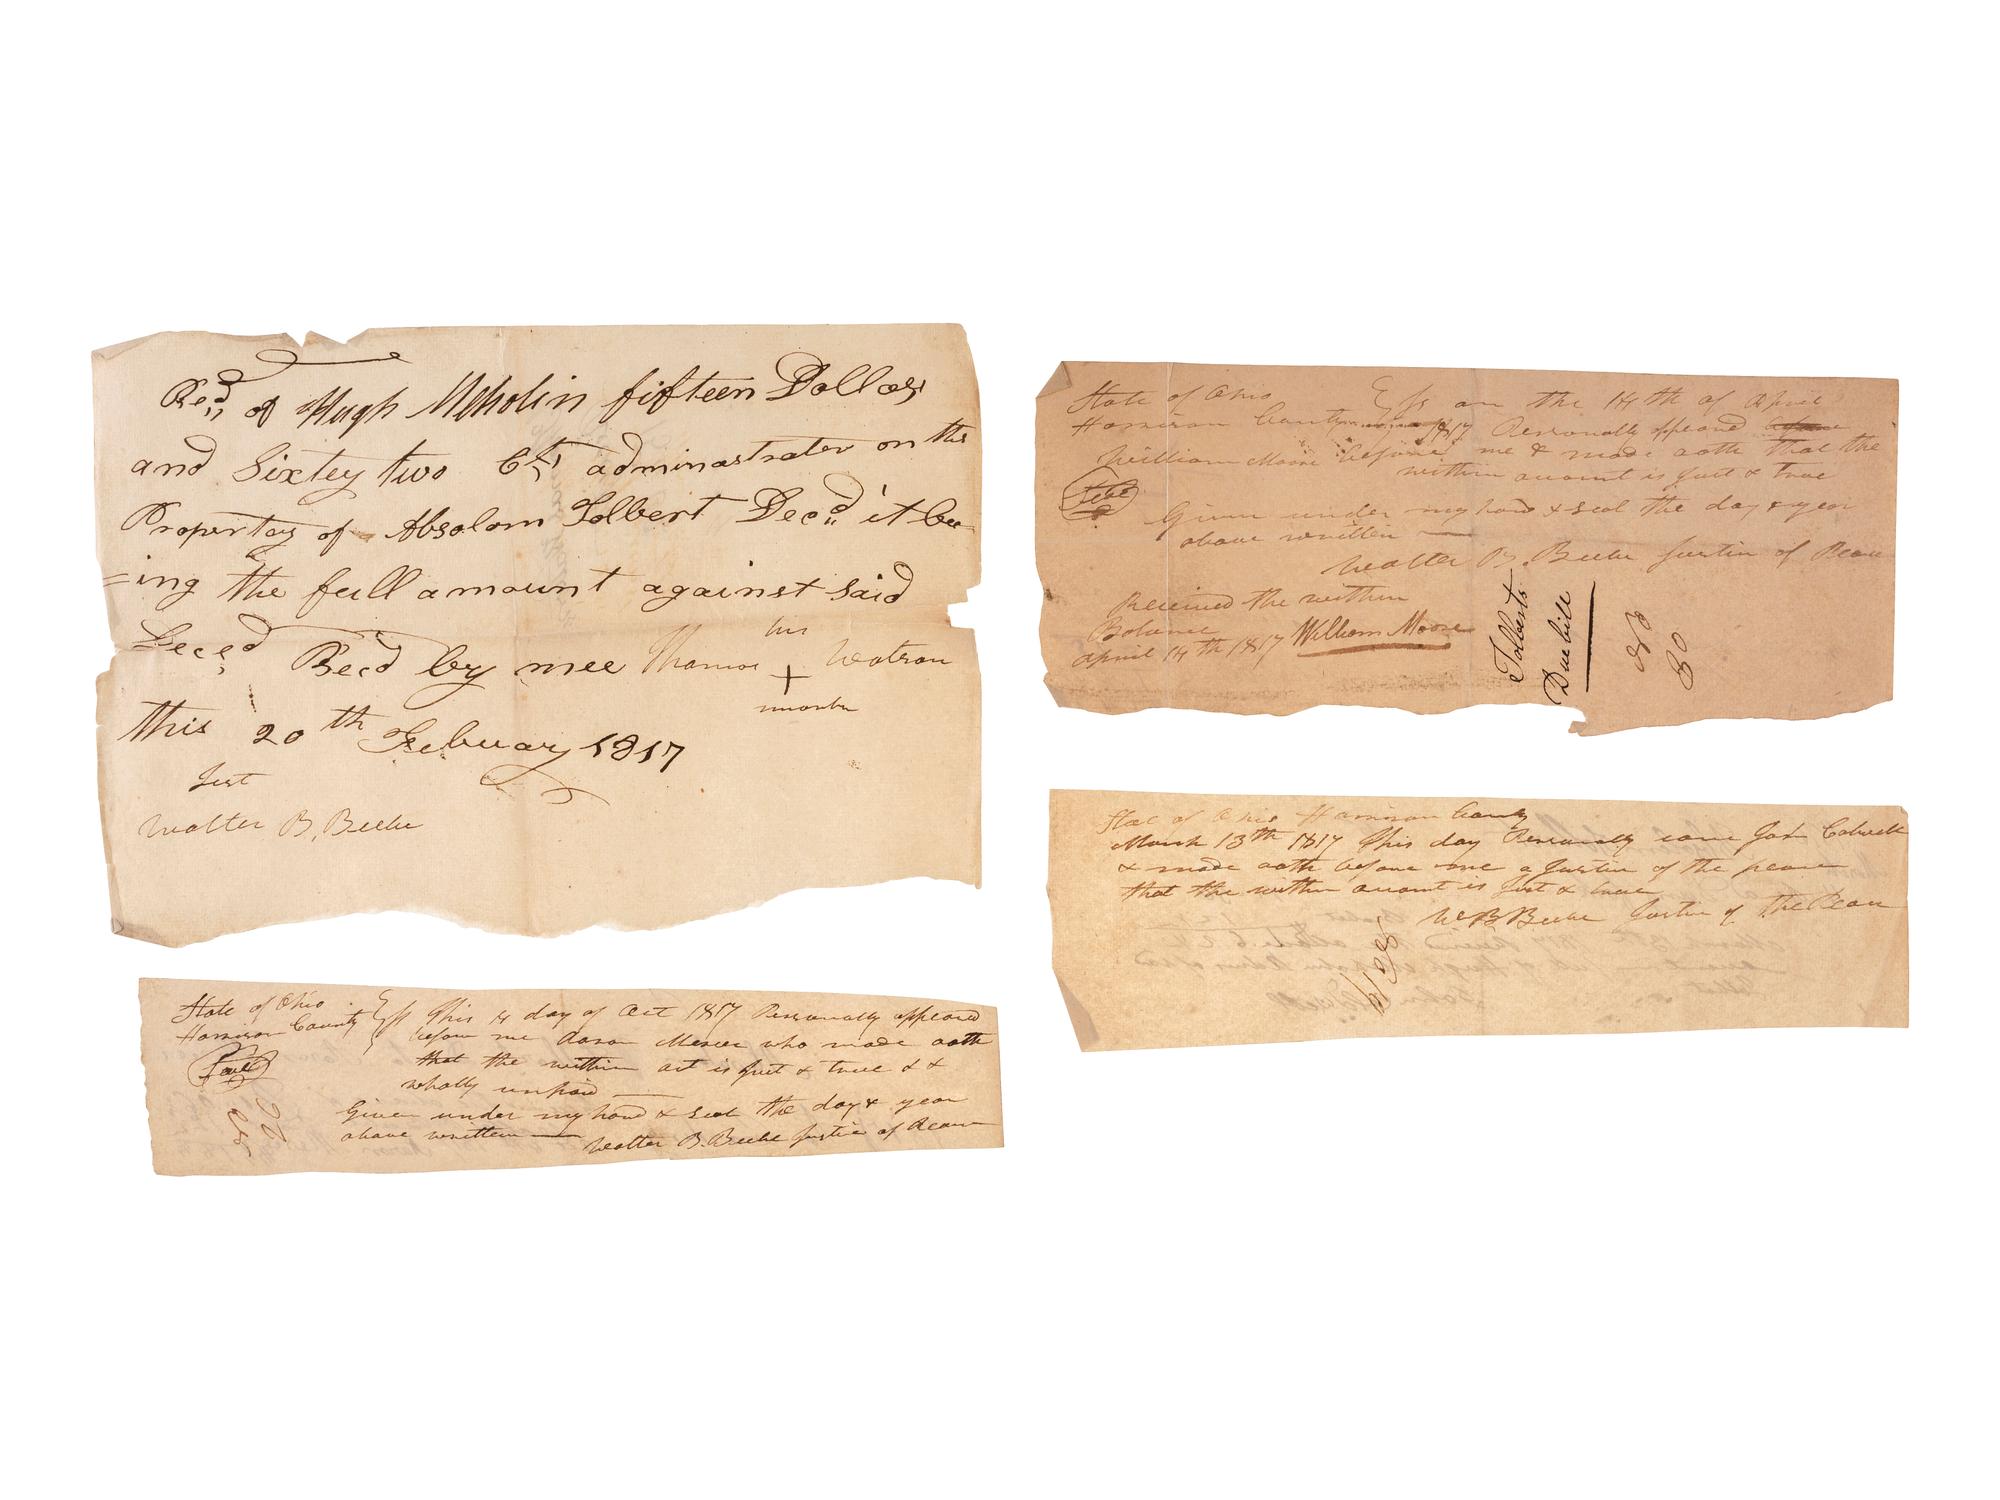 Rec,,d of Hugh McHolin fifteen Dollars
and Sixtey two Cts adminastrator on the
Propertay of Absolom Tolbert Dec,,d it be
=ing the full amount against said
Deced Recd by mee Thomas his + mark Watson
this 20th Febuary 1817
Test
Walter B. Beebe
State of Ohio
Harrison County } ss This 14 day of Oct 1817 Personally appeared
before me Aaron Mercer who made oath
that the within act is just & true & &
wholly unpaid
Seal
Given under my hand & seal the day & year
above written
Walter B. Beebe Justice of Peace
State of Ohio
Harrison County } ss on the 14th of April
1817 Personally appeared before
William Moore before me & made oath that the
within amount is just & true
Seal
Given under my hand & seal the day & year
above written
Walter B. Beebe Justice of Peace
Received the within
Balance
April 14th 1817 William Moore
Tolberts
Due bill
State of Ohio Harrison County
March 13th 1817 This day Personally came John Colwell
& made oath before me a Justice of the peace
that the within amount is just & true
W B Beebe Justice of the Peace